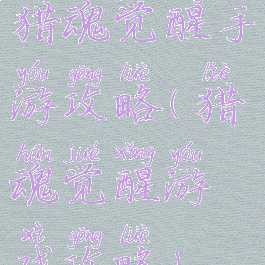 猎魂觉醒手
yóu gōng lüè liè
游攻略(猎
hún jué xǐng yóu
魂觉醒游
xì gōng lüè
戏攻略)